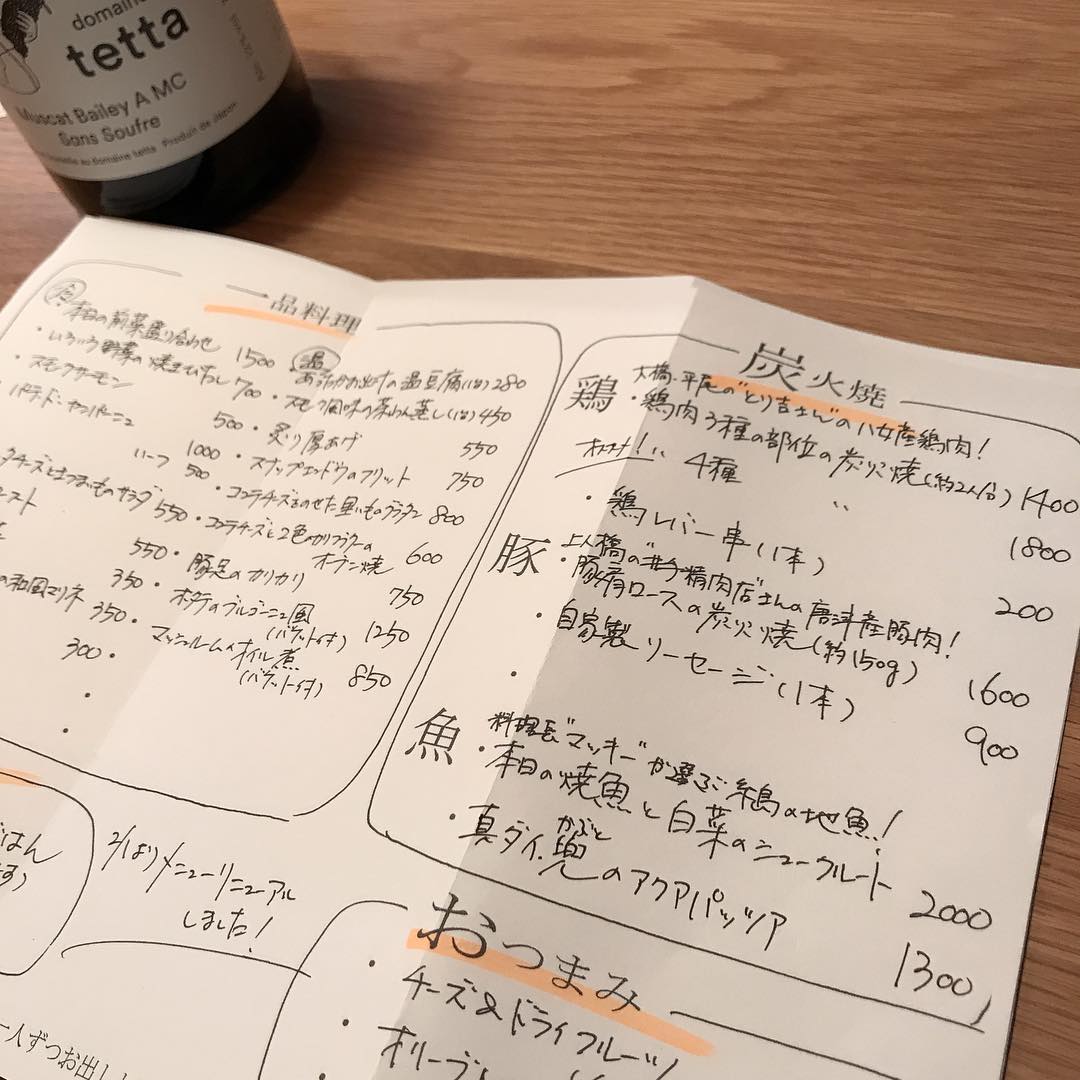 domaine
tetta
Muscat Bailey A MC
Sans Soufre
Produit de Japon
一品料理
本日の前菜盛り合わせ 1500
・いろいろ野菜の焼きびたし 700
・スモークサーモン 500
パテ・ド・カンパーニュ 1000
ハーフ 500
550
550
の和風マリネ 350
350
300
温
温豆腐(1台) 280
・スモーク風味の茶わん蒸し(1台) 450
・炙り厚あげ 550
・スナップエンドウのフリット 750
・ゴルゴンゾーラチーズをのせた里いものグラタン 800
オーブン焼 600
・豚足のカリカリ 750
・ホタテのブルゴーニュ風
(バゲット付) 1250
・マッシュルームオイル煮
(バゲット付) 850
炭火焼
鶏
大橋・平尾の“とり吉さん”の八女産鶏肉!
・鶏肉3種の部位の炭火焼(約2人分) 1400
オススメ!! 4種 〃 1800
・鶏レバー串(1本) 200
豚
上人橋の“井手精肉店”さんの唐津産豚肉!
・豚肩ロースの炭火焼(約150g) 1600
・自家製ソーセージ(1本) 900
魚
料理長“マッキー”が選ぶ糸島の地魚!
・本日の焼魚と白菜のシュークルート 2000
・真ダイ兜のアクアパッツア 1300
かぶと
ごはん
2/1よりメニューリニューアル
しました!
おつまみ
・チーズ&ドライフルーツ
・オリーブ
一人ずつお出し